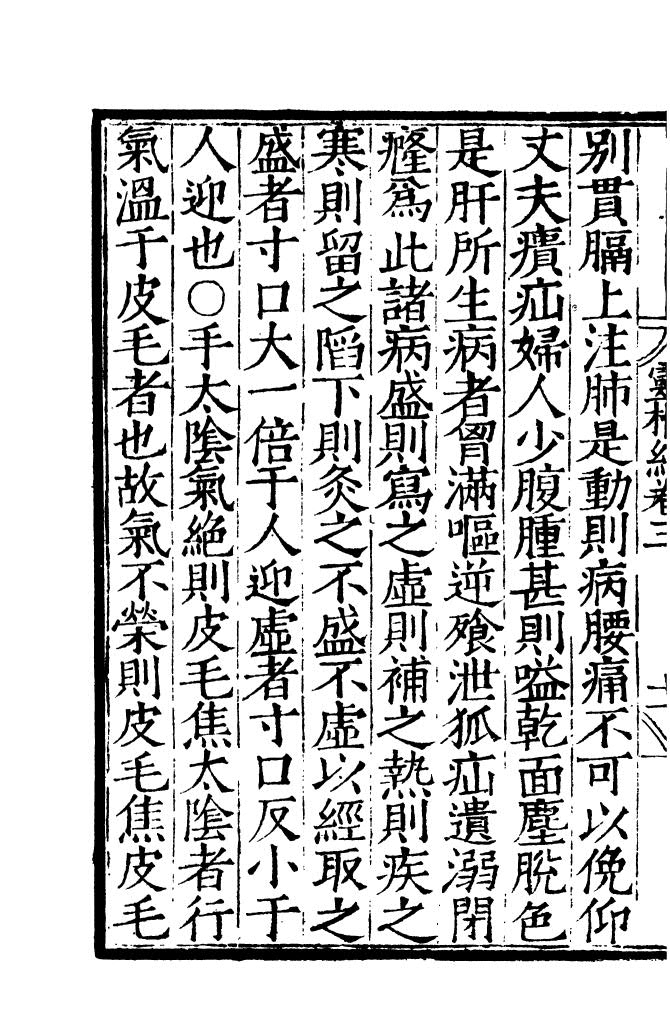 靈樞經卷三
別貫膈上注肺是動則病腰痛不可以俛仰
丈夫㿉疝婦人少腹腫甚則嗌乾面塵脫色
是肝所生病者胷滿嘔逆飱泄狐疝遺溺閉
癃爲此諸病盛則寫之虛則補之熱則疾之
寒則留之陷下則灸之不盛不虛以經取之
盛者寸口大一倍于人迎虛者寸口反小于
人迎也○手太陰氣絶則皮毛焦太陰者行
氣溫于皮毛者也故氣不榮則皮毛焦皮毛